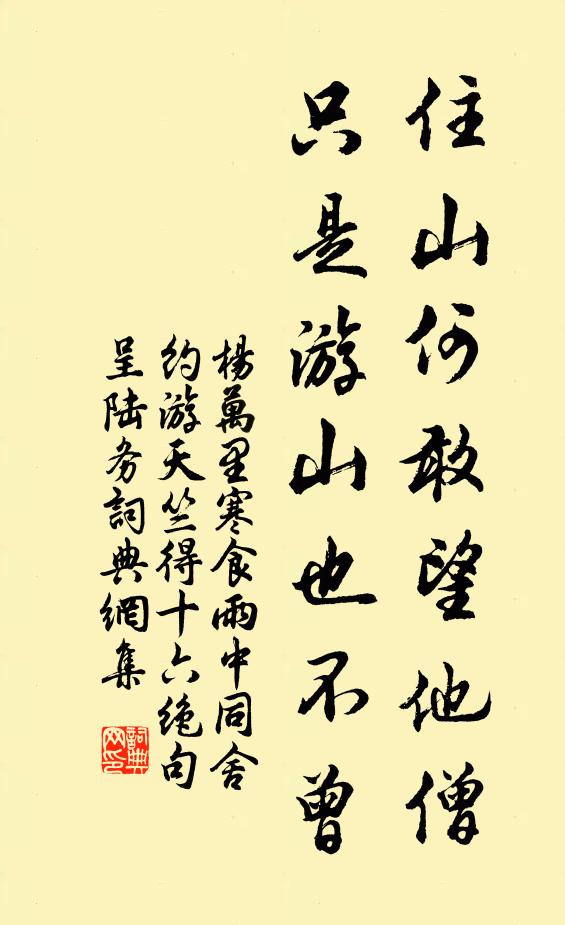 住山何敢望他僧
只是游山也不曾
楊萬里寒食雨中同舍
約游天竺得十六绝句
呈陆务詞典網集
詞典网印